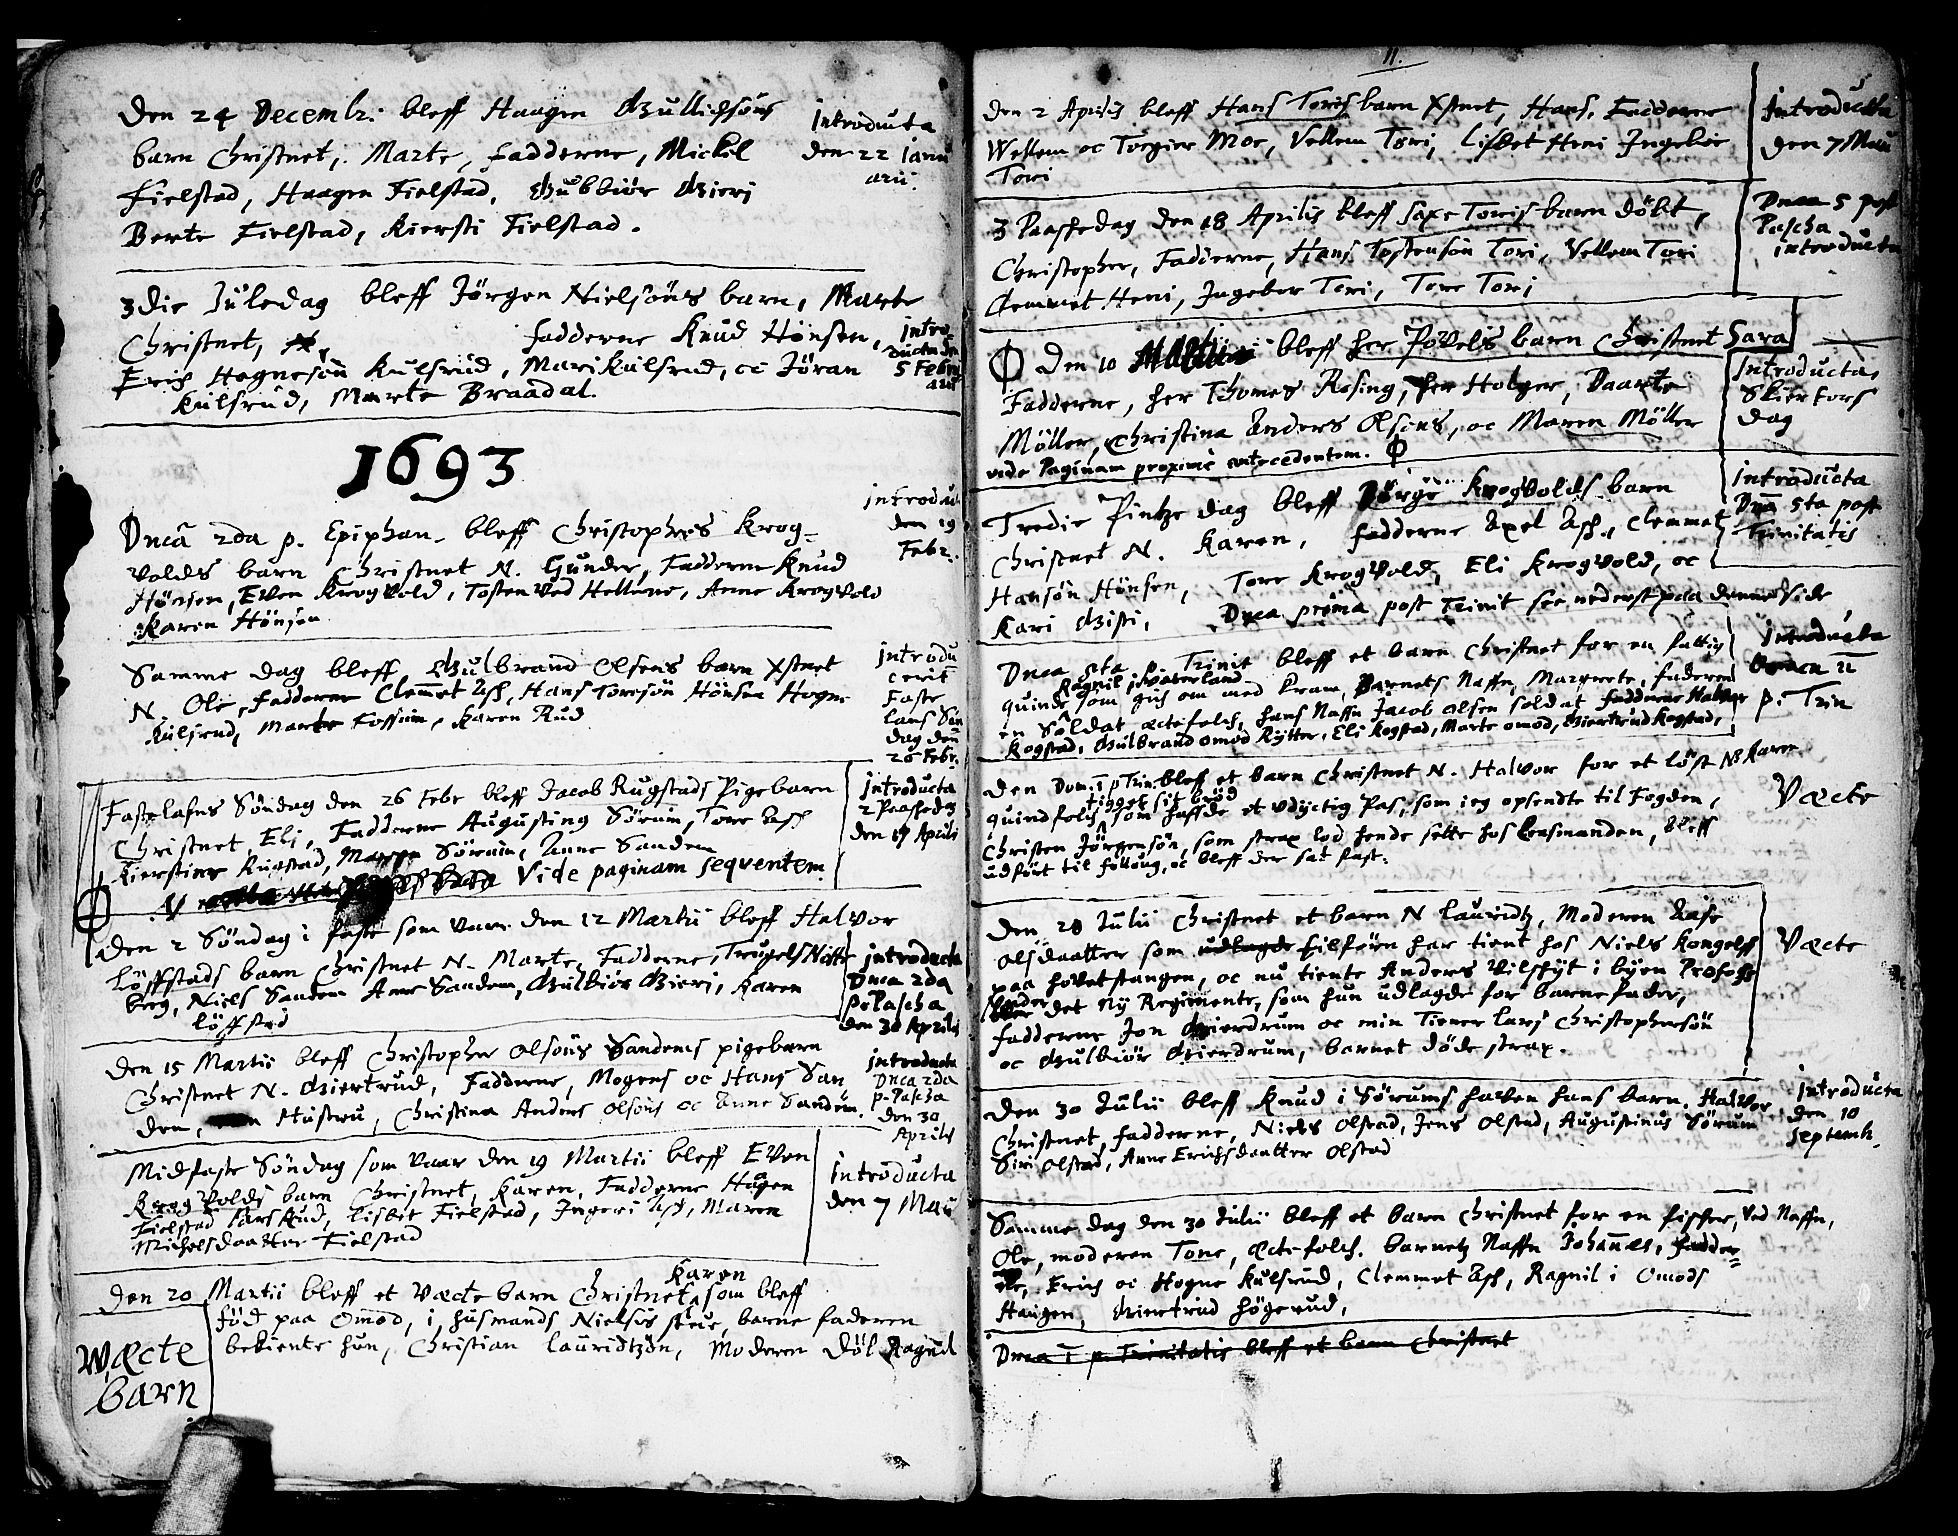 Den 24 Decembr: bleff Haagen Gullichsöns
barn Christnet, Marte, Fadderne, Mickel
Fielstad, Haagen Fielstad, Gubbiör Gieri
Berte Fielstad, Kiersti Fielstad.
introducta
den 22 Janu
arii.
3die Juledag bleff Jörgen Nielsöns barn, Marte
Christnet, fadderne Knud Hönsen,
Erich Hognesön Kulsrud, Mari Kulsrud, oc Jöran
Kulsrud, Marte Braadal.
intro
ducta den
5 Febru
arii
1693
Dnca 2da p. Epiphan. bleff Christophers Krog-
volds barn Christnet N. Gunder, Fadderne Knud
Hönsen, Even Krogvold, Tosten ved Hellerne, Anne Krogvold
Karen Hönsen
introdu
den 19
Febr.
Samme dag bleff Gulbrand Olsens barn Xstnet
N. Ole, Fadderne Clemmet Asch, Hans Toresön Hönsen Hogne
Kulsrud, Marte Fossum, Karen Rud
introdu
cerit
Faste
lans Sön
dag den
26 Febr.
Fastelafns Söndag den 26 Febr bleff Jacob Rugstads Pigebarn
Christnet, Eli, Fadderne Augustinus Sörum, Tore Asch
Kierstine Rugstad, Maren Sörum, Anne Sandem
Vide paginam seqventem.
introducta
2 Paaskedag
den 17 Aprilis
Den 2 Söndag i Faste som vaar den 12 Martii bleff Halvor
Löffstads barn Christnet N. Marte, Fadderne, Trugels Natte
berg, Niels Sandem Anne Sandem, Gulbiör Gieri, Karen
Löffstad
introducta
Dnca 2da
p. Pascha
den 30 Aprilis
Den 15 Martii bleff Christopher Olsöns Sandems pigebarn
Christnet N. Giertrud, Fadderne, Mogens oc Hans San
dem, Hustru, Christina Anders Olsöns oc Anne Sandem.
introducta
Dnca 2da
p. Pascha
den 30
Aprilis
Midfaste Söndag som vaar den 19 Martii bleff Even
Krogvolds barn Christnet, Karen, Fadderne Hagen
Fielstad Lars Rud, Lisbet Fielstad, Ingeri Asch, Maren
Michelsdaatter Fielstad
introducta
den 7 Maii
Karen
Den 20 Martii bleff et Væcte barn Christnet, som bleff
föd paa Omod, i husmands Nielsis stue, barne faderen
bekiente hun, Christian Lauridtzön, Moderen Döl Ragnil
Wæcte
barn
11.
Den 2 Aprilis bleff Hans Toris barn Xstnet, Hans, Fadderne
Wellem oc Torgier Moe, Vellem Tori, Lisbet Heni Ingebor
Tori
introducta
den 7 Maii
3 Paaskedag den 18 Aprilis bleff Saxe Toris barn döbt,
Christopher, Fadderne, Hans Tostensön Tori, Vellem Tori
Clemmet Heni, Ingebor Tori, Tore Tori
Dnca 5 post
Pascha
introducta
Den 10 bleff her Povels barn Christnet Sara
Fadderne, her Thomes Rosing, her Holger, Daarte
Möller, Christina Anders Olsöns, oc Maren Möller
vide Paginam proximè antecedentem.
Introducta,
Skiertors
dag
Tredie Pintze dag bleff Börge Krogvolds barn
Christnet N. Karen, fadderne Axel Asch, Clemmet
Hansön Hönsen, Tore Krogvold, Eli Krogvold, oc
Kari Gisti, Dnca prima post Trinit see nederst paa denne side
introducta
Dnca 5ta post
Trinitatis
Dnca 6ta p. Trinit bleff et barn Christnet for en fattig
Ragnil i Waterland
quinde som gich om med Kram, Barnets Naffn, Margrete, faderen
en Soldat ectefolch, hans Naffn Jacob Olsen soldat fadderne Halvor
Kogstad, Gulbrand Omod Rytter, Eli Kogstad, Marte Omod, Giertrud Kogstad,
introducta
Dnca 11
p. Trin
Den Dom. 1 p Trin. bleff et barn Christnet N. Halvor for et löst NB Karen
tigget sit bröd
quindfolch, som haffde et udyctig Pas, som ieg opsendte til Fogden,
Christen Jörgensön, som strax lod hende sette hos Lensmanden, bleff
udfört til Folloug, oc bleff der sat fast.
Væcte
Den 28 Julii Christnet et barn N Lauridtz, Moderen Aase
Olsdaatter som tilforn har tient hos Niels Kongelff
paa Hovetstangen, oc nu tiente Anders Vilskyt i byen Profosse
under det Ny Regimente, som hun udlagde for barnefader,
fadderne Jon Gierdrum oc min Tiener Lars Christophersön
oc Gulbiör Gierdrum, barnet döde strax.
Væcte
Den 30 Julii bleff Knud i Sörums haven hans barn, Halvor
Christnet, fadderne, Niels Olstad, Jens Olstad, Augustinus Sörum
Siri Olstad, Anne Erichsdaatter Olstad
introducta
den 10
Septemb.
Samme dag den 30 Julii bleff et barn Christnet for en fischer, ved Naffn,
Ole, moderen Tone, Ectefolch. barnetz Naffn Johannes, fadder-
ne, Erich oc Hogne Kulsrud, Clemmet Asch, Ragnil i Omods
Haugen, Giertrud Högerud,
Dnca 1 p. Trinitatis bleff et barn Christnet